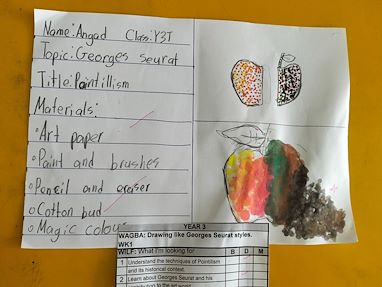 Name: Angad Class: Y3T
Topic: Georges seurat
Title: Paintillism
Materials:
Art paper
Paint and brushes
Pencil and eraser
Cotton bud
Magic colou
YEAR 3
WAGBA: Drawing like Georges Seurat styles.
WK1
WILF: What I'm looking for B D M
1 Understand the techniques of Pointillism
and its historical context.
2 Learn about Georges Seurat and his